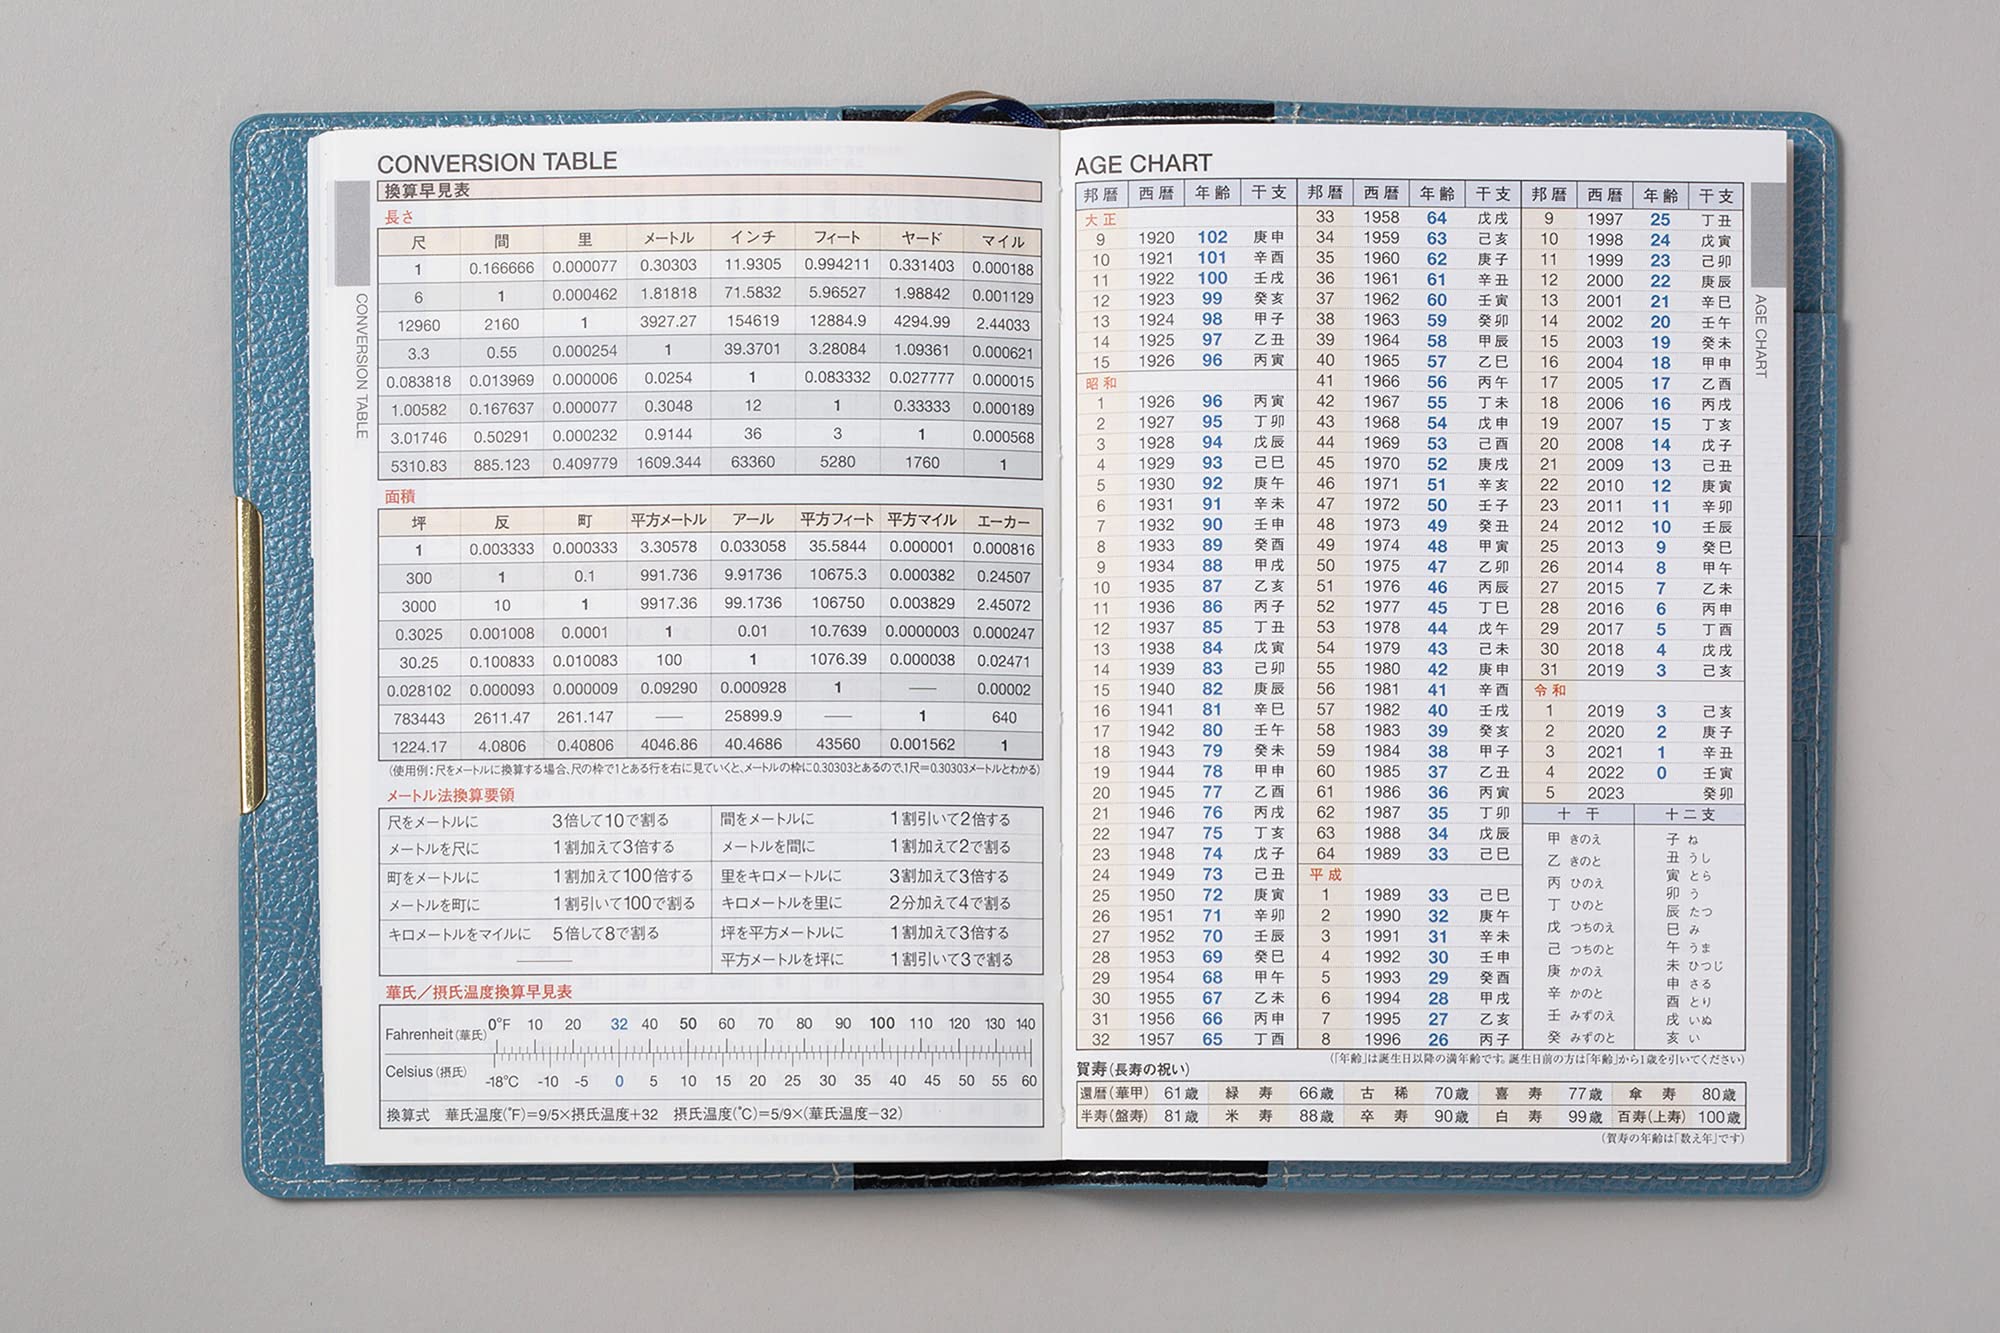 CONVERSION TABLE
換算早見表
長さ
尺 間 里 メートル インチ フィート ヤード マイル
1 0.166666 0.000077 0.30303 11.9305 0.994211 0.331403 0.000188
6 1 0.000462 1.81818 71.5832 5.96527 1.98842 0.001129
12960 2160 1 3927.27 154619 12884.9 4294.99 2.44033
3.3 0.55 0.000254 1 39.3701 3.28084 1.09361 0.000621
0.083818 0.013969 0.000006 0.0254 1 0.083332 0.027777 0.000015
1.00582 0.167637 0.000077 0.3048 12 1 0.33333 0.000189
3.01746 0.50291 0.000232 0.9144 36 3 1 0.000568
5310.83 885.123 0.409779 1609.344 63360 5280 1760 1
面積
坪 反 町 平方メートル アール 平方フィート 平方マイル エーカー
1 0.003333 0.000333 3.30578 0.033058 35.5844 0.000001 0.000816
300 1 0.1 991.736 9.91736 10675.3 0.000382 0.24507
3000 10 1 9917.36 99.1736 106750 0.003829 2.45072
0.3025 0.001008 0.0001 1 0.01 10.7639 0.0000003 0.000247
30.25 0.100833 0.010083 100 1 1076.39 0.000038 0.02471
0.028102 0.000093 0.000009 0.09290 0.000928 1 — 0.00002
783443 2611.47 261.147 — 25899.9 — 1 640
1224.17 4.0806 0.40806 4046.86 40.4686 43560 0.001562 1
(使用例:尺をメートルに換算する場合、尺の枠で1とある行を右に見ていくと、メートルの枠に0.30303とあるので、1尺=0.30303メートルとわかる)
メートル法換算要領
尺をメートルに 3倍して10で割る 間をメートルに 1割引いて2倍する
メートルを尺に 1割加えて3倍する メートルを間に 1割加えて2で割る
町をメートルに 1割加えて100倍する 里をキロメートルに 3割加えて3倍する
メートルを町に 1割引いて100で割る キロメートルを里に 2分加えて4で割る
キロメートルをマイルに 5倍して8で割る 坪を平方メートルに 1割加えて3倍する
— 平方メートルを坪に 1割引いて3で割る
華氏/摂氏温度換算早見表
Fahrenheit(華氏) 0°F 10 20 32 40 50 60 70 80 90 100 110 120 130 140
Celsius(摂氏) -18°C -10 -5 0 5 10 15 20 25 30 35 40 45 50 55 60
換算式 華氏温度(°F)=9/5×摂氏温度+32 摂氏温度(°C)=5/9×(華氏温度−32)
CONVERSION TABLE
AGE CHART
邦暦 西暦 年齢 干支 邦暦 西暦 年齢 干支 邦暦 西暦 年齢 干支
大正 33 1958 64 戊戌 9 1997 25 丁丑
9 1920 102 庚申 34 1959 63 己亥 10 1998 24 戊寅
10 1921 101 辛酉 35 1960 62 庚子 11 1999 23 己卯
11 1922 100 壬戌 36 1961 61 辛丑 12 2000 22 庚辰
12 1923 99 癸亥 37 1962 60 壬寅 13 2001 21 辛巳
13 1924 98 甲子 38 1963 59 癸卯 14 2002 20 壬午
14 1925 97 乙丑 39 1964 58 甲辰 15 2003 19 癸未
15 1926 96 丙寅 40 1965 57 乙巳 16 2004 18 甲申
昭和 41 1966 56 丙午 17 2005 17 乙酉
1 1926 96 丙寅 42 1967 55 丁未 18 2006 16 丙戌
2 1927 95 丁卯 43 1968 54 戊申 19 2007 15 丁亥
3 1928 94 戊辰 44 1969 53 己酉 20 2008 14 戊子
4 1929 93 己巳 45 1970 52 庚戌 21 2009 13 己丑
5 1930 92 庚午 46 1971 51 辛亥 22 2010 12 庚寅
6 1931 91 辛未 47 1972 50 壬子 23 2011 11 辛卯
7 1932 90 壬申 48 1973 49 癸丑 24 2012 10 壬辰
8 1933 89 癸酉 49 1974 48 甲寅 25 2013 9 癸巳
9 1934 88 甲戌 50 1975 47 乙卯 26 2014 8 甲午
10 1935 87 乙亥 51 1976 46 丙辰 27 2015 7 乙未
11 1936 86 丙子 52 1977 45 丁巳 28 2016 6 丙申
12 1937 85 丁丑 53 1978 44 戊午 29 2017 5 丁酉
13 1938 84 戊寅 54 1979 43 己未 30 2018 4 戊戌
14 1939 83 己卯 55 1980 42 庚申 31 2019 3 己亥
15 1940 82 庚辰 56 1981 41 辛酉 令和
16 1941 81 辛巳 57 1982 40 壬戌 1 2019 3 己亥
17 1942 80 壬午 58 1983 39 癸亥 2 2020 2 庚子
18 1943 79 癸未 59 1984 38 甲子 3 2021 1 辛丑
19 1944 78 甲申 60 1985 37 乙丑 4 2022 0 壬寅
20 1945 77 乙酉 61 1986 36 丙寅 5 2023 癸卯
21 1946 76 丙戌 62 1987 35 丁卯 十干 十二支
22 1947 75 丁亥 63 1988 34 戊辰
23 1948 74 戊子 64 1989 33 己巳
24 1949 73 己丑 平成
25 1950 72 庚寅 1 1989 33 己巳
26 1951 71 辛卯 2 1990 32 庚午
27 1952 70 壬辰 3 1991 31 辛未
28 1953 69 癸巳 4 1992 30 壬申
29 1954 68 甲午 5 1993 29 癸酉
30 1955 67 乙未 6 1994 28 甲戌
31 1956 66 丙申 7 1995 27 乙亥
32 1957 65 丁酉 8 1996 26 丙子
甲 きのえ
乙 きのと
丙 ひのえ
丁 ひのと
戊 つちのえ
己 つちのと
庚 かのえ
辛 かのと
壬 みずのえ
癸 みずのと
子 ね
丑 うし
寅 とら
卯 う
辰 たつ
巳 み
午 うま
未 ひつじ
申 さる
酉 とり
戌 いぬ
亥 い
(「年齢」は誕生日以降の満年齢です。誕生日前の方は「年齢」から1歳を引いてください)
賀寿(長寿の祝い)
還暦(華甲) 61歳 緑寿 66歳 古稀 70歳 喜寿 77歳 傘寿 80歳
半寿(盤寿) 81歳 米寿 88歳 卒寿 90歳 白寿 99歳 百寿(上寿) 100歳
(賀寿の年齢は「数え年」です)
AGE CHART